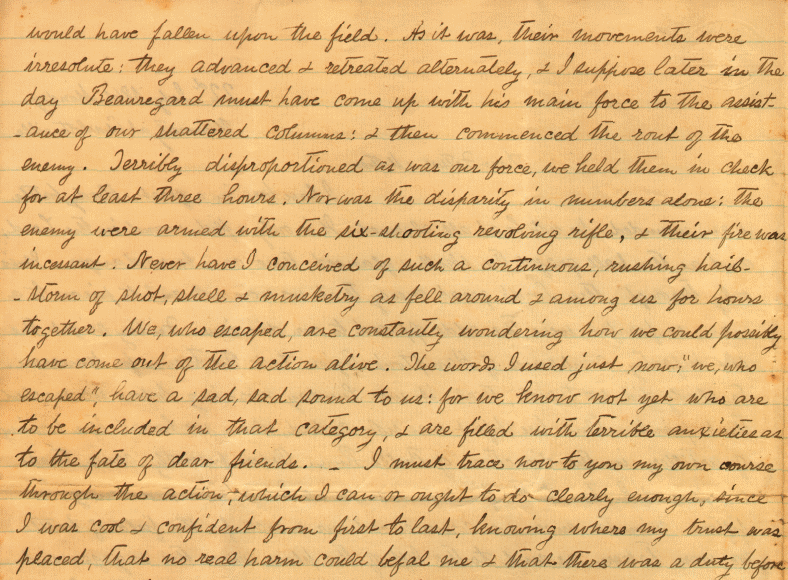 would have fallen upon the field. As it was, their movements were
irresolute: they advanced & retreated alternately, & I suppose later in the
day Beauregard must have come up with his main force to the assist-
-ance of our shattered columns: & then commenced the rout of the
enemy. Terribly disproportioned as was our force, we held them in check
for at least three hours. Nor was the disparity in numbers alone: the
enemy were armed with the six-shooting revolving rifle, & their fire was
incessant. Never have I conceived of such a continuous, rushing hail-
-storm of shot, shell & musketry as fell around & among us for hours
together. We, who escaped, are constantly wondering how we could possibly
have come out of the action alive. The words I used just now, "we, who
escaped", have a sad, sad sound to us: for we know not yet who are
to be included in that category, & are filled with terrible anxieties as
to the fate of dear friends. _ I must trace now to you my own course
through the action, which I can or ought to do clearly enough, since
I was cool & confident from first to last, knowing where my trust was
placed, that no real harm could befal me & that there was a duty before